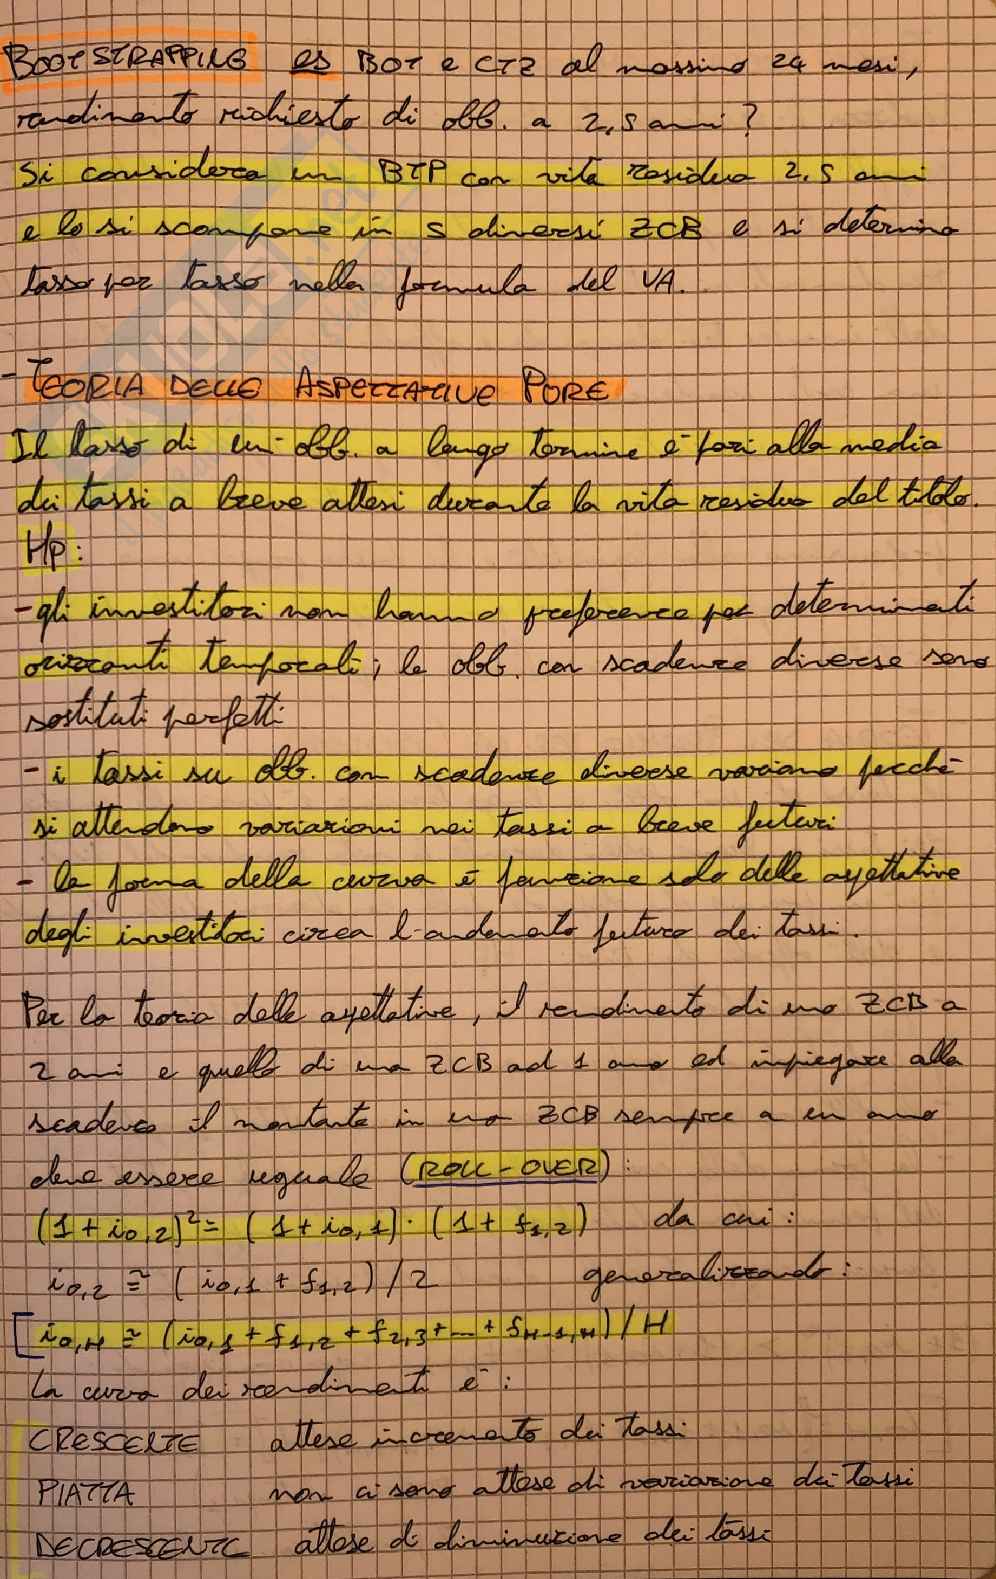 BOOTSTRAPPING es BOT e CTZ al massimo 24 mesi,
rendimento richiesto di obb. a 2,5 anni?
Si considera un BTP con vita residua 2,5 anni
e lo si scompone in 5 diversi ZCB e si determina
tasso per tasso nella formula del VA.
- TEORIA DELLE ASPETTATIVE PURE
Il tasso di un' obb. a lungo termine è pari alla media
dei tassi a breve attesi durante la vita residua del titolo.
Hp:
- gli investitori non hanno preferenze per determinati
orizzonti temporali; le obb. con scadenze diverse sono
sostituti perfetti
- i tassi su obb. con scadenze diverse variano perchè
si attendono variazioni nei tassi a breve futuri
- la forma della curva è funzione solo delle aspettative
degli investitori circa l'andamento futuro dei tassi.
Per la teoria delle aspettative, il rendimento di uno ZCB a
2 anni e quello di uno ZCB ad 1 anno ed impiegare alla
scadenza il montante in uno ZCB sempre a un anno
deve essere uguale (ROLL-OVER):
(1+i0,2)²= (1+i0,1)·(1+f1,2) da cui:
i0,2 ≅ (i0,1+f1,2)/2 generalizzando:
[i0,H ≅ (i0,1+f1,2+f2,3+...+fH-1,H)/H
La curva dei rendimenti è:
CRESCENTE attese incremento dei tassi
PIATTA non ci sono attese di variazione dei tassi
DECRESCENTE attese di diminuzione dei tassi